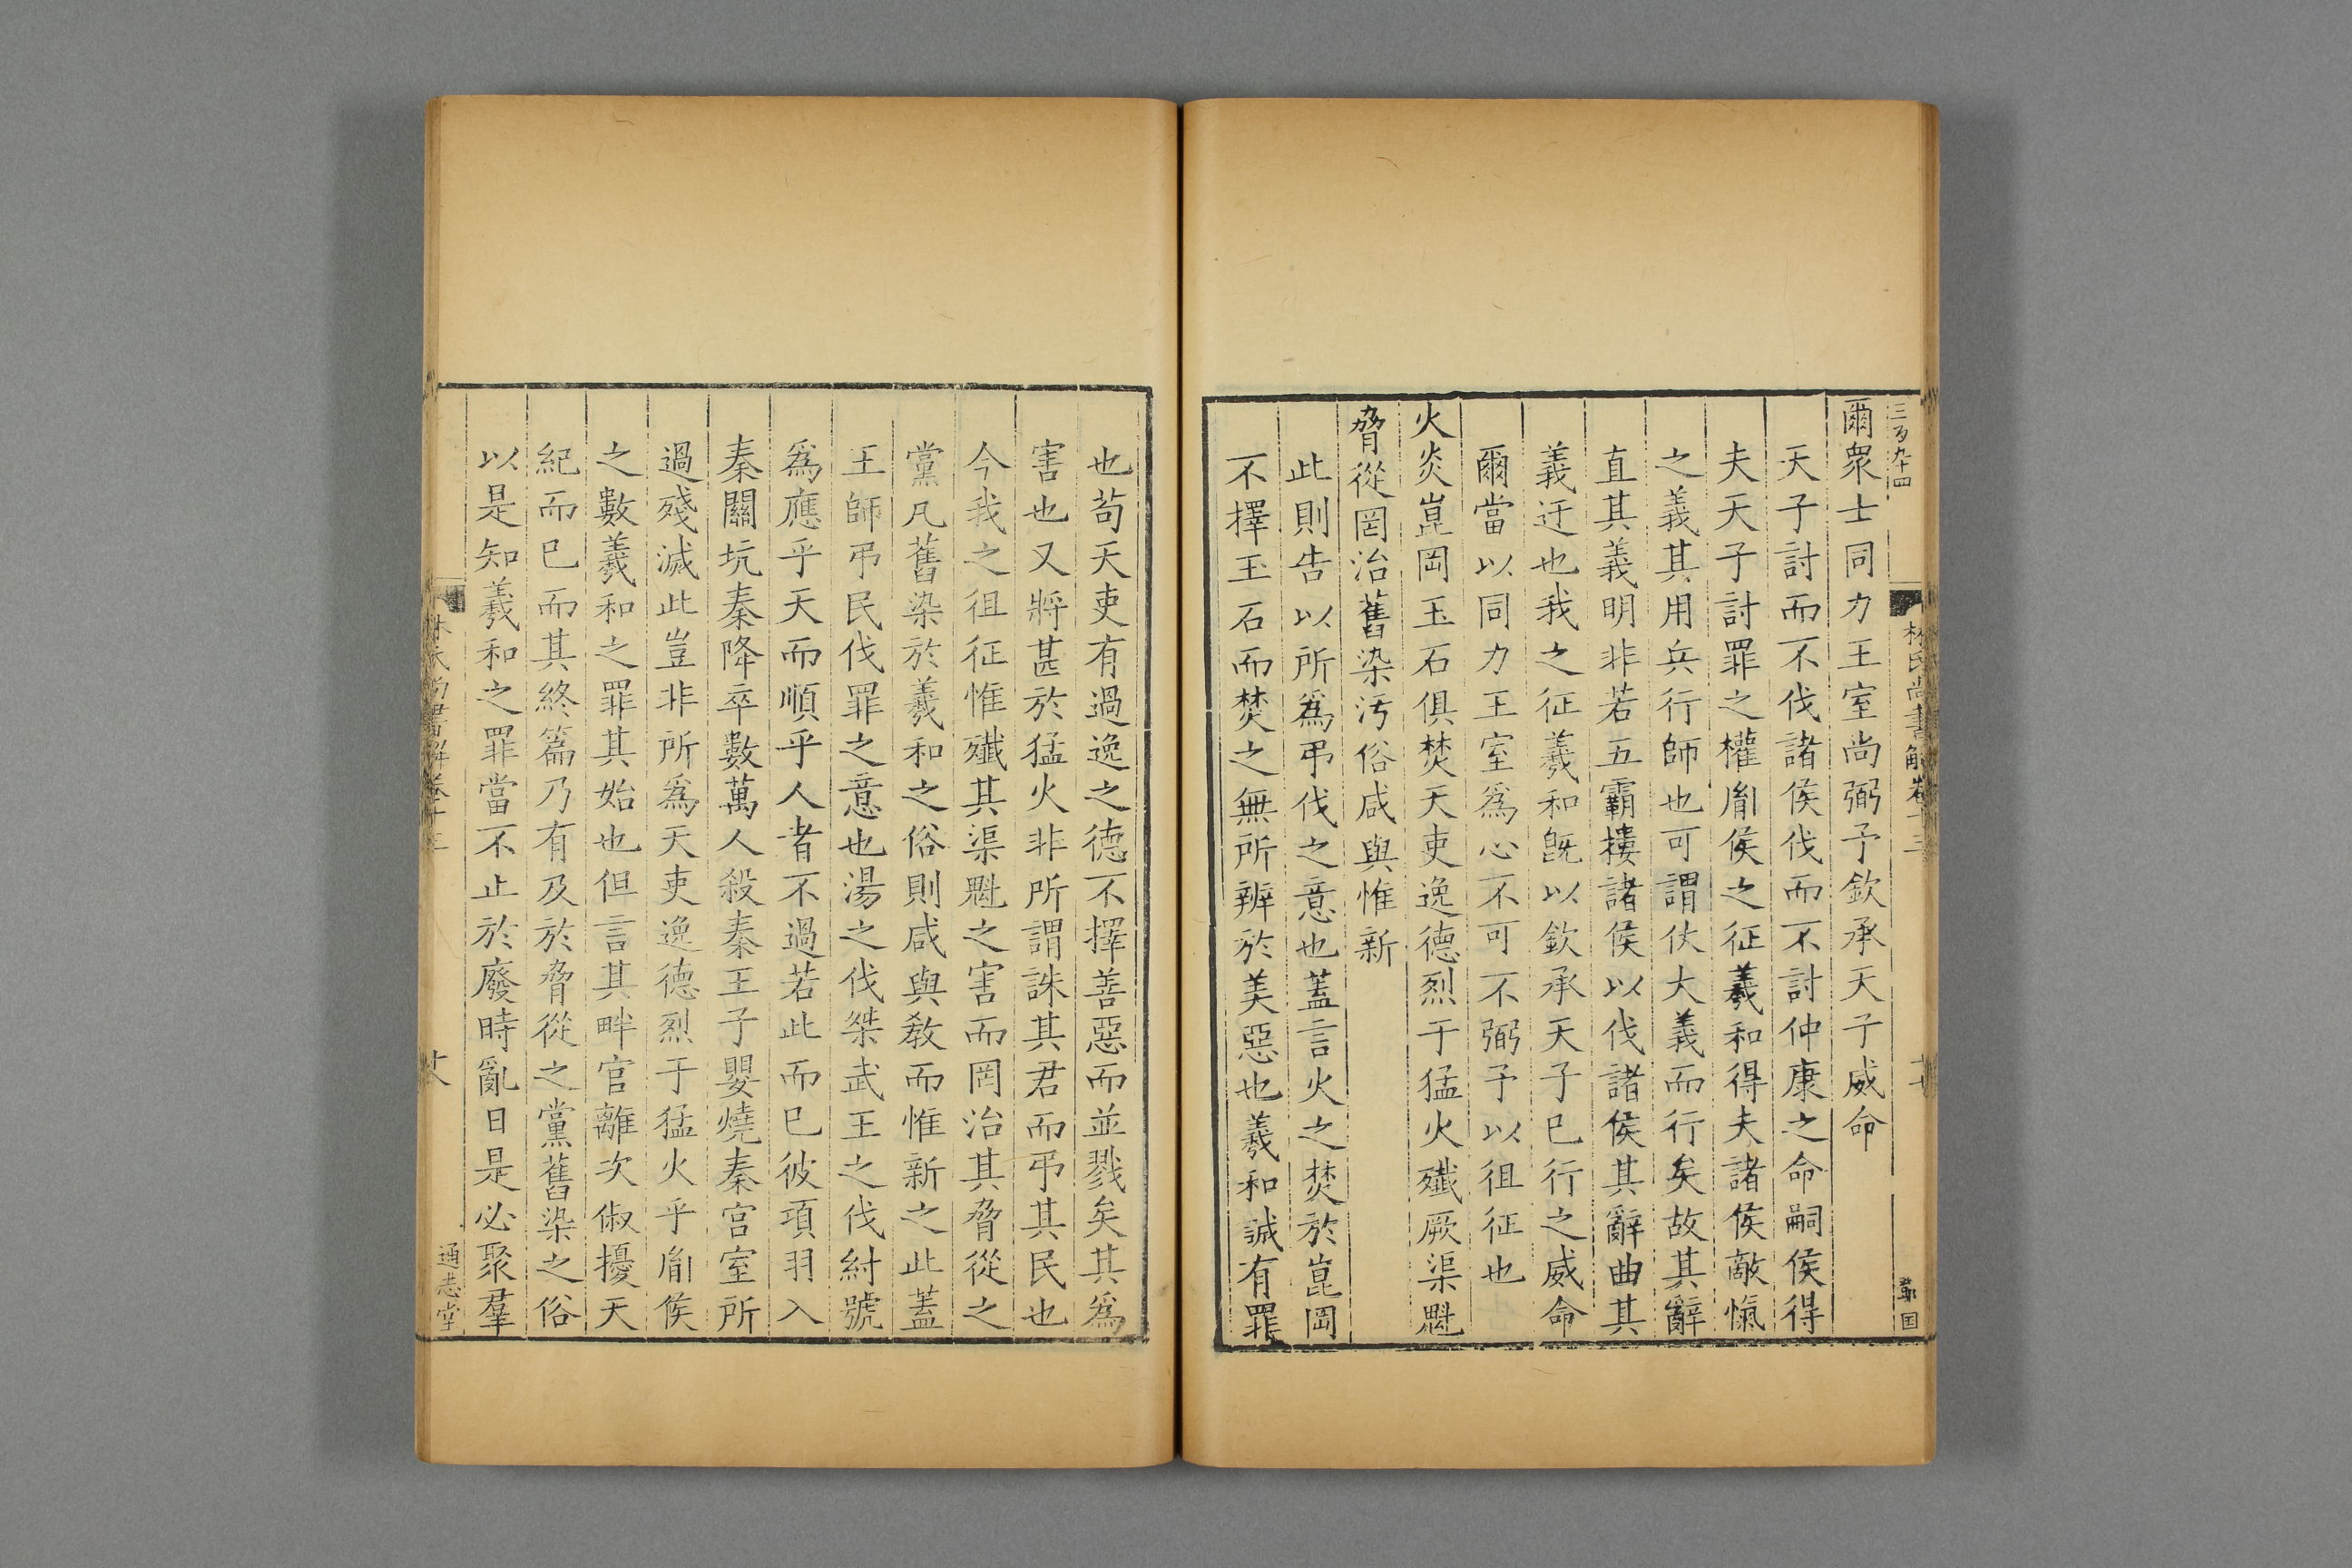 三百九十四
林氏尚書解卷十三
十七
爾眾士同力王室尚弼予欽承天子威命
天子討而不伐諸侯伐而不討仲康之命嗣侯得
夫天子討罪之權胤侯之征羲和得夫諸侯敵愾
之義其用兵行師也可謂仗大義而行矣故其辭
直其義明非若五霸摟諸侯以伐諸侯其辭曲其
義迂也我之征羲和旣以欽承天子已行之威命
爾當以同力王室爲心不可不弼予以徂征也
火炎崑岡玉石俱焚天吏逸德烈于猛火殲厥渠魁
脅從罔治舊染汚俗咸與惟新
此則告以所爲弔伐之意也蓋言火之焚於崑岡
不擇玉石而焚之無所辨於美惡也羲和誠有罪
也苟天吏有過逸之德不擇善惡而並戮矣其爲
害也又將甚於猛火非所謂誅其君而弔其民也
今我之徂征惟殲其渠魁之害而罔治其脅從之
黨凡舊染於羲和之俗則咸與敎而惟新之此蓋
王師弔民伐罪之意也湯之伐桀武王之伐紂號
爲應乎天而順乎人者不過若此而已彼項羽入
秦關坑秦降卒數萬人殺秦王子嬰燒秦宮室所
過殘滅此豈非所爲天吏逸德烈于猛火乎胤侯
之數羲和之罪其始也但言其畔官離次俶擾天
紀而已而其終篇乃有及於脅從之黨舊染之俗
以是知羲和之罪當不止於廢時亂日是必聚羣
林氏尚書解卷十三
十八
通志堂